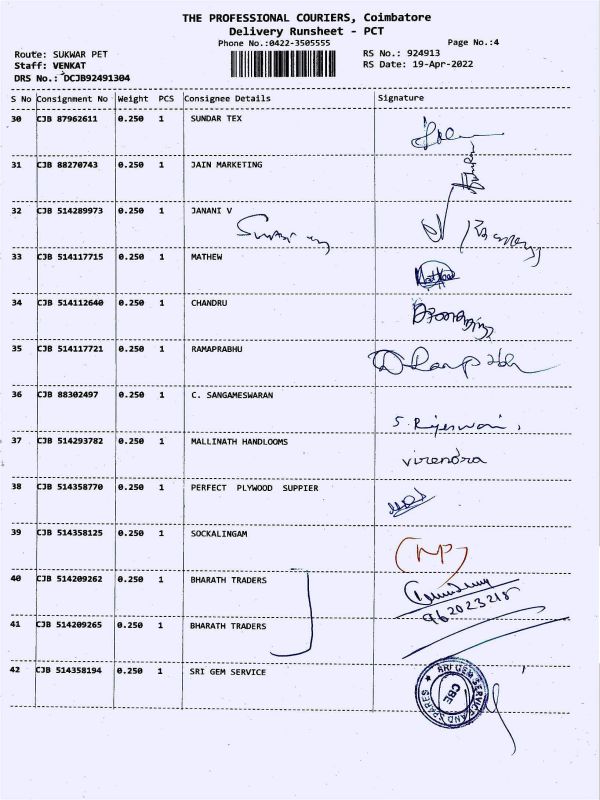 THE PROFESSIONAL COURIERS, Coimbatore
Delivery Runsheet - PCT
Phone No.:0422-3505555
Page No.:4
Route: SUKWAR PET
RS No.: 924913
Staff: VENKAT
RS Date: 19-Apr-2022
DRS No.: DCJB92491304
S No Consignment No Weight PCS Consignee Details Signature
30 CJB 87962611 0.250 1 SUNDAR TEX
31 CJB 88270743 0.250 1 JAIN MARKETING
32 CJB 514289973 0.250 1 JANANI V
33 CJB 514117715 0.250 1 MATHEW
34 CJB 514112640 0.250 1 CHANDRU
35 CJB 514117721 0.250 1 RAMAPRABHU
36 CJB 88302497 0.250 1 C. SANGAMESWARAN
S. Rajeswari,
37 CJB 514293782 0.250 1 MALLINATH HANDLOOMS
virendra
38 CJB 514358770 0.250 1 PERFECT PLYWOOD SUPPIER
39 CJB 514358125 0.250 1 SOCKALINGAM
40 CJB 514209262 0.250 1 BHARATH TRADERS
962023218
41 CJB 514209265 0.250 1 BHARATH TRADERS
42 CJB 514358194 0.250 1 SRI GEM SERVICE
SRI GEM SERVICE AND SPARES
CBE